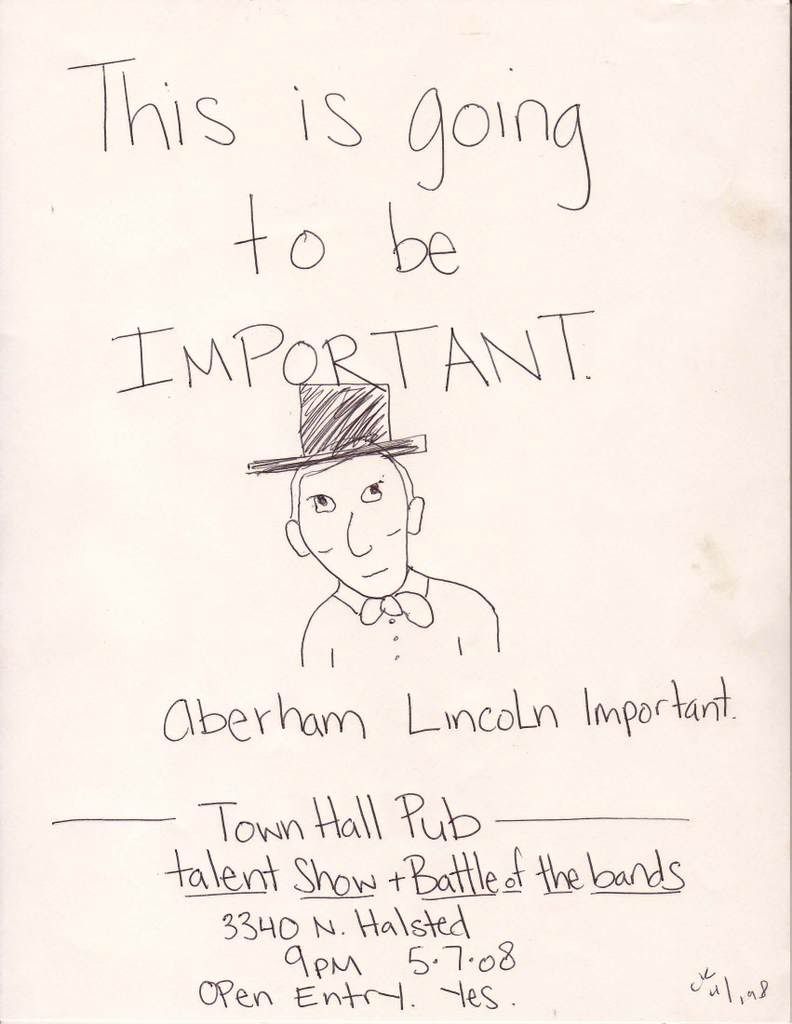 This is going
to be
IMPORTANT.
Aberham Lincoln Important.
Town Hall Pub
talent Show + Battle of the bands
3340 N. Halsted
9PM 5.7.08
Open Entry. Yes.